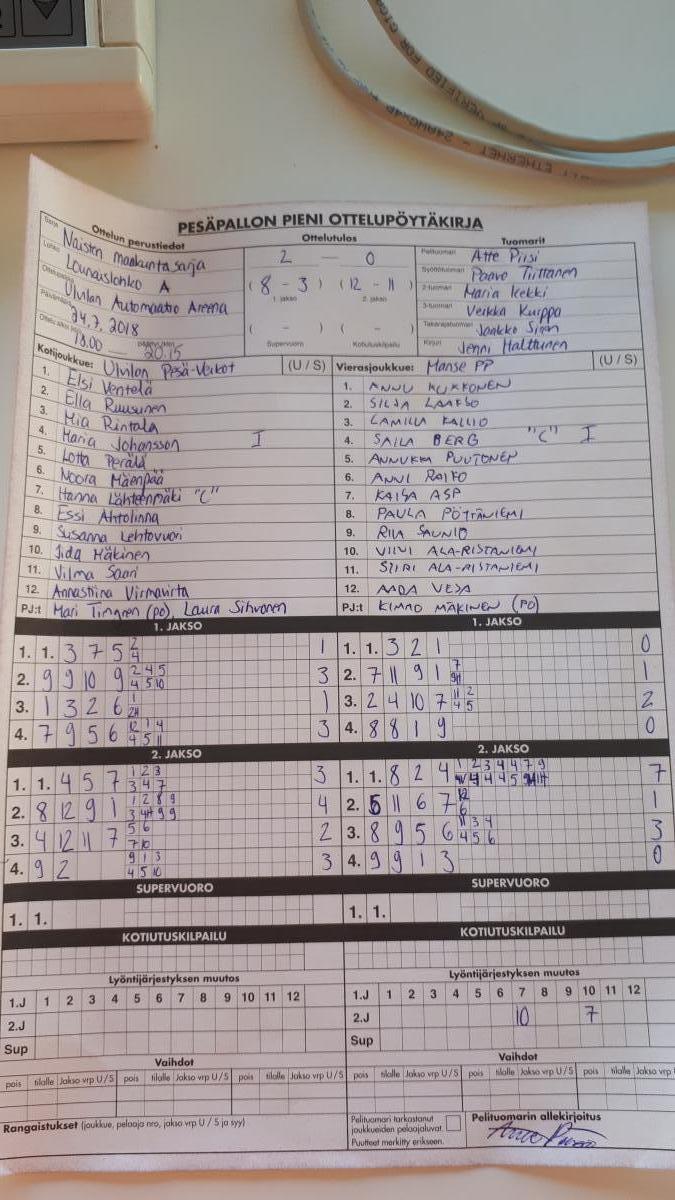 VERIFIED FOR GIGA
ETHERNET - 24AWG×4P
PESÄPALLON PIENI OTTELUPÖYTÄKIRJA
Ottelun perustiedot
Sarja Naisten maakuntasarja
Lohko Lounaislohko A
Ottelupaikka Ulvilan Automaatio Areena
Päivämäärä 24.7.2018
Ottelu alkoi klo 18.00 — päättyi klo 20.15
Ottelutulos
2 — 0
( 8 - 3 ) ( 12 - 11 )
1. jakso 2. jakso
( - ) ( - )
Supervuoro Kotiutuskilpailu
Tuomarit
Pelituomari Atte Piisi
Syöttötuomari Paavo Tiittanen
2-tuomari Maria Kekki
3-tuomari Veikka Kurppa
Takarajatuomari Jaakko
Kirjuri Jenni Halttunen
Kotijoukkue: Ulvilan Pesä-Veikot (U / S)
1. Elsi Ventelä
2. Ella Ruusunen
3. Mia Rintala
4. Maria Johansson I
5. Lotta Perälä
6. Noora Mäenpää
7. Hanna Lähteenmäki "C"
8. Essi Ahtolinna
9. Susanna Lehtovuori
10. Iida Mäkinen
11. Vilma Saari
12. Annastiina Virmavirta
PJ:t Mari Tingren (po), Laura Sihvonen
Vierasjoukkue: Manse PP (U / S)
1. ANNU KUKKONEN
2. SILJA LAAKSO
3. CAMILLA KALLIO
4. SAILA BERG "C" I
5. ANNUKKA PUUTONEN
6. ANNI RAIKO
7. KAISA ASP
8. PAULA PÖTTÄNIEMI
9. RIIA SAUNIO
10. VIIVI ALA-RISTANIEMI
11. SIIRI ALA-RISTANIEMI
12. AADA VEJA
PJ:t KIMMO MÄKINEN (PO)
1. JAKSO
1. 1. 3 7 5 2 4 1
2. 9 9 10 9 2 4 5 4 5 10 3
3. 1 3 2 6 1 1
4. 7 9 5 6 12 1 4 4 5 11 3
1. JAKSO
1. 1. 3 2 1 0
2. 7 11 9 1 7 1
3. 2 4 10 7 11 2 4 5 2
4. 8 8 1 9 0
2. JAKSO
1. 1. 4 5 7 1 2 3 3 4 7 3
2. 8 12 9 1 1 2 8 9 4
3. 4 12 11 7 5 6 7 10 2
4. 9 2 9 1 3 4 5 10 3
2. JAKSO
1. 1. 8 2 4 1 2 3 4 4 7 9 7
2. 5 11 6 7 12 6 1
3. 8 9 5 6 11 3 4 4 5 6 3
4. 9 9 1 3 0
SUPERVUORO
1. 1.
SUPERVUORO
1. 1.
KOTIUTUSKILPAILU
KOTIUTUSKILPAILU
Lyöntijärjestyksen muutos
1.J 1 2 3 4 5 6 7 8 9 10 11 12
2.J
Sup
Lyöntijärjestyksen muutos
1.J 1 2 3 4 5 6 7 8 9 10 11 12
2.J 10 7
Sup
Vaihdot
pois tilalle Jakso vrp U / S pois tilalle Jakso vrp U / S pois tilalle Jakso vrp U / S
Vaihdot
pois tilalle Jakso vrp U / S pois tilalle Jakso vrp U / S pois tilalle Jakso vrp
Rangaistukset (joukkue, pelaaja nro, jakso vrp U / S ja syy)
Pelituomari tarkastanut
joukkueiden pelaajaluvat.
Puutteet merkitty erikseen.
Pelituomarin allekirjoitus